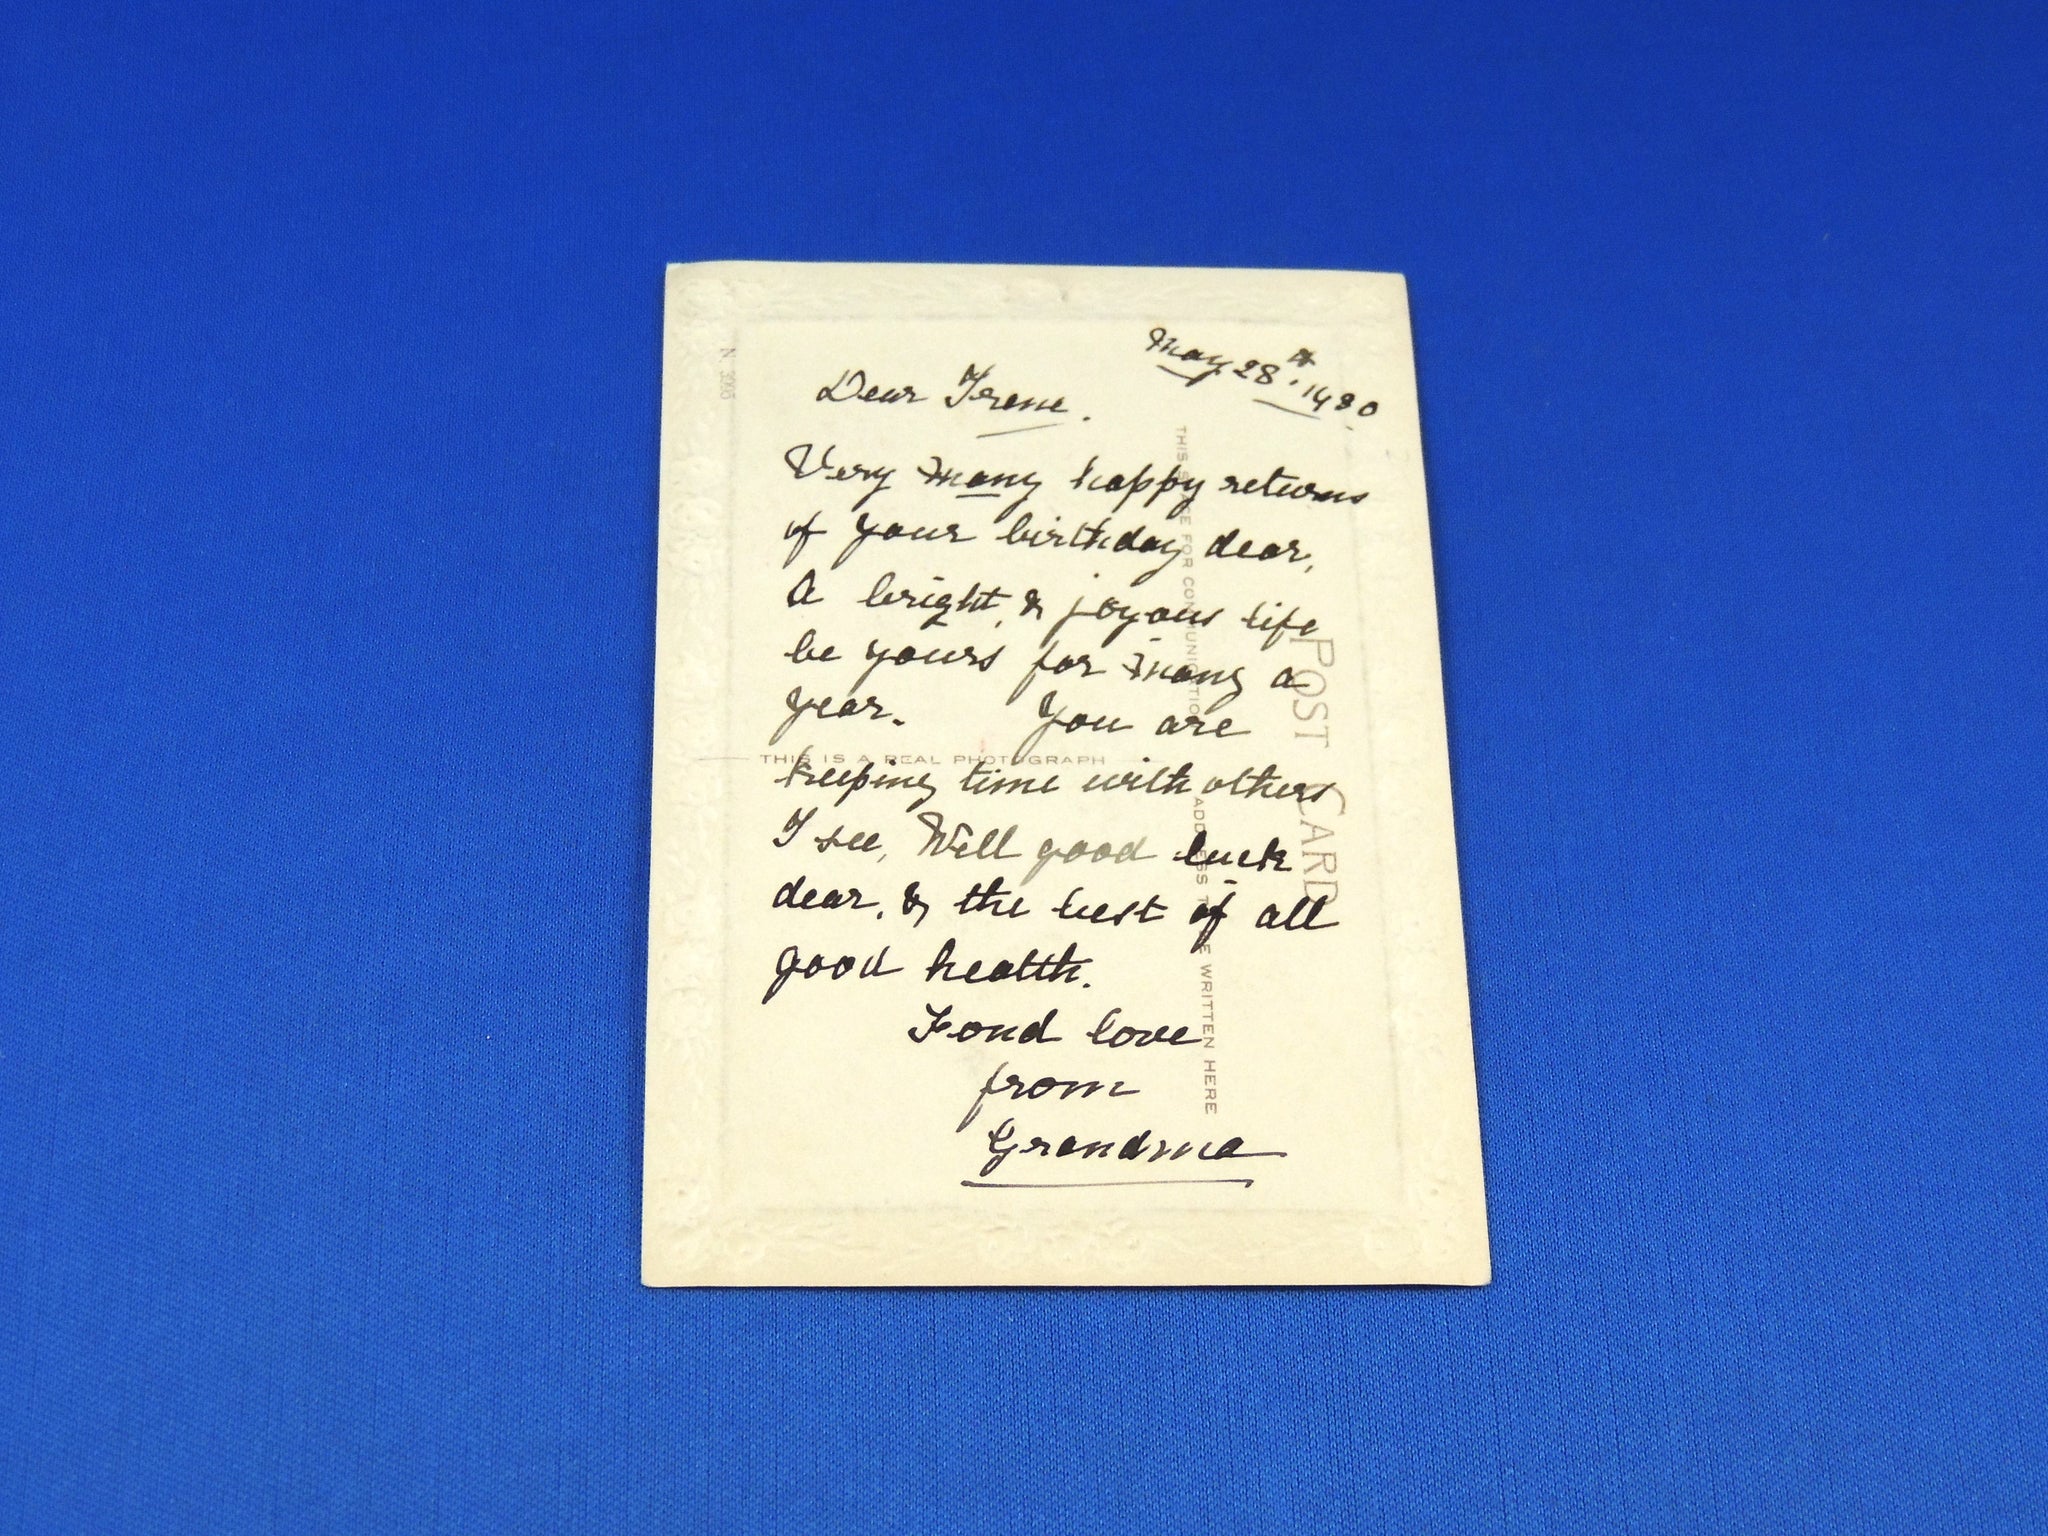 May 28th. 1930.
Dear Irene.
Very many happy returns
of your birthday dear,
A bright, & joyous life
be yours for many a
year. You are
keeping time with others
I see, Well good luck
dear, & the best of all
good health.
Fond love
from
Grandma
N. 3995
THIS IS A REAL PHOTOGRAPH
POST CARD
THIS SPACE FOR COMMUNICATION
ADDRESS TO BE WRITTEN HERE